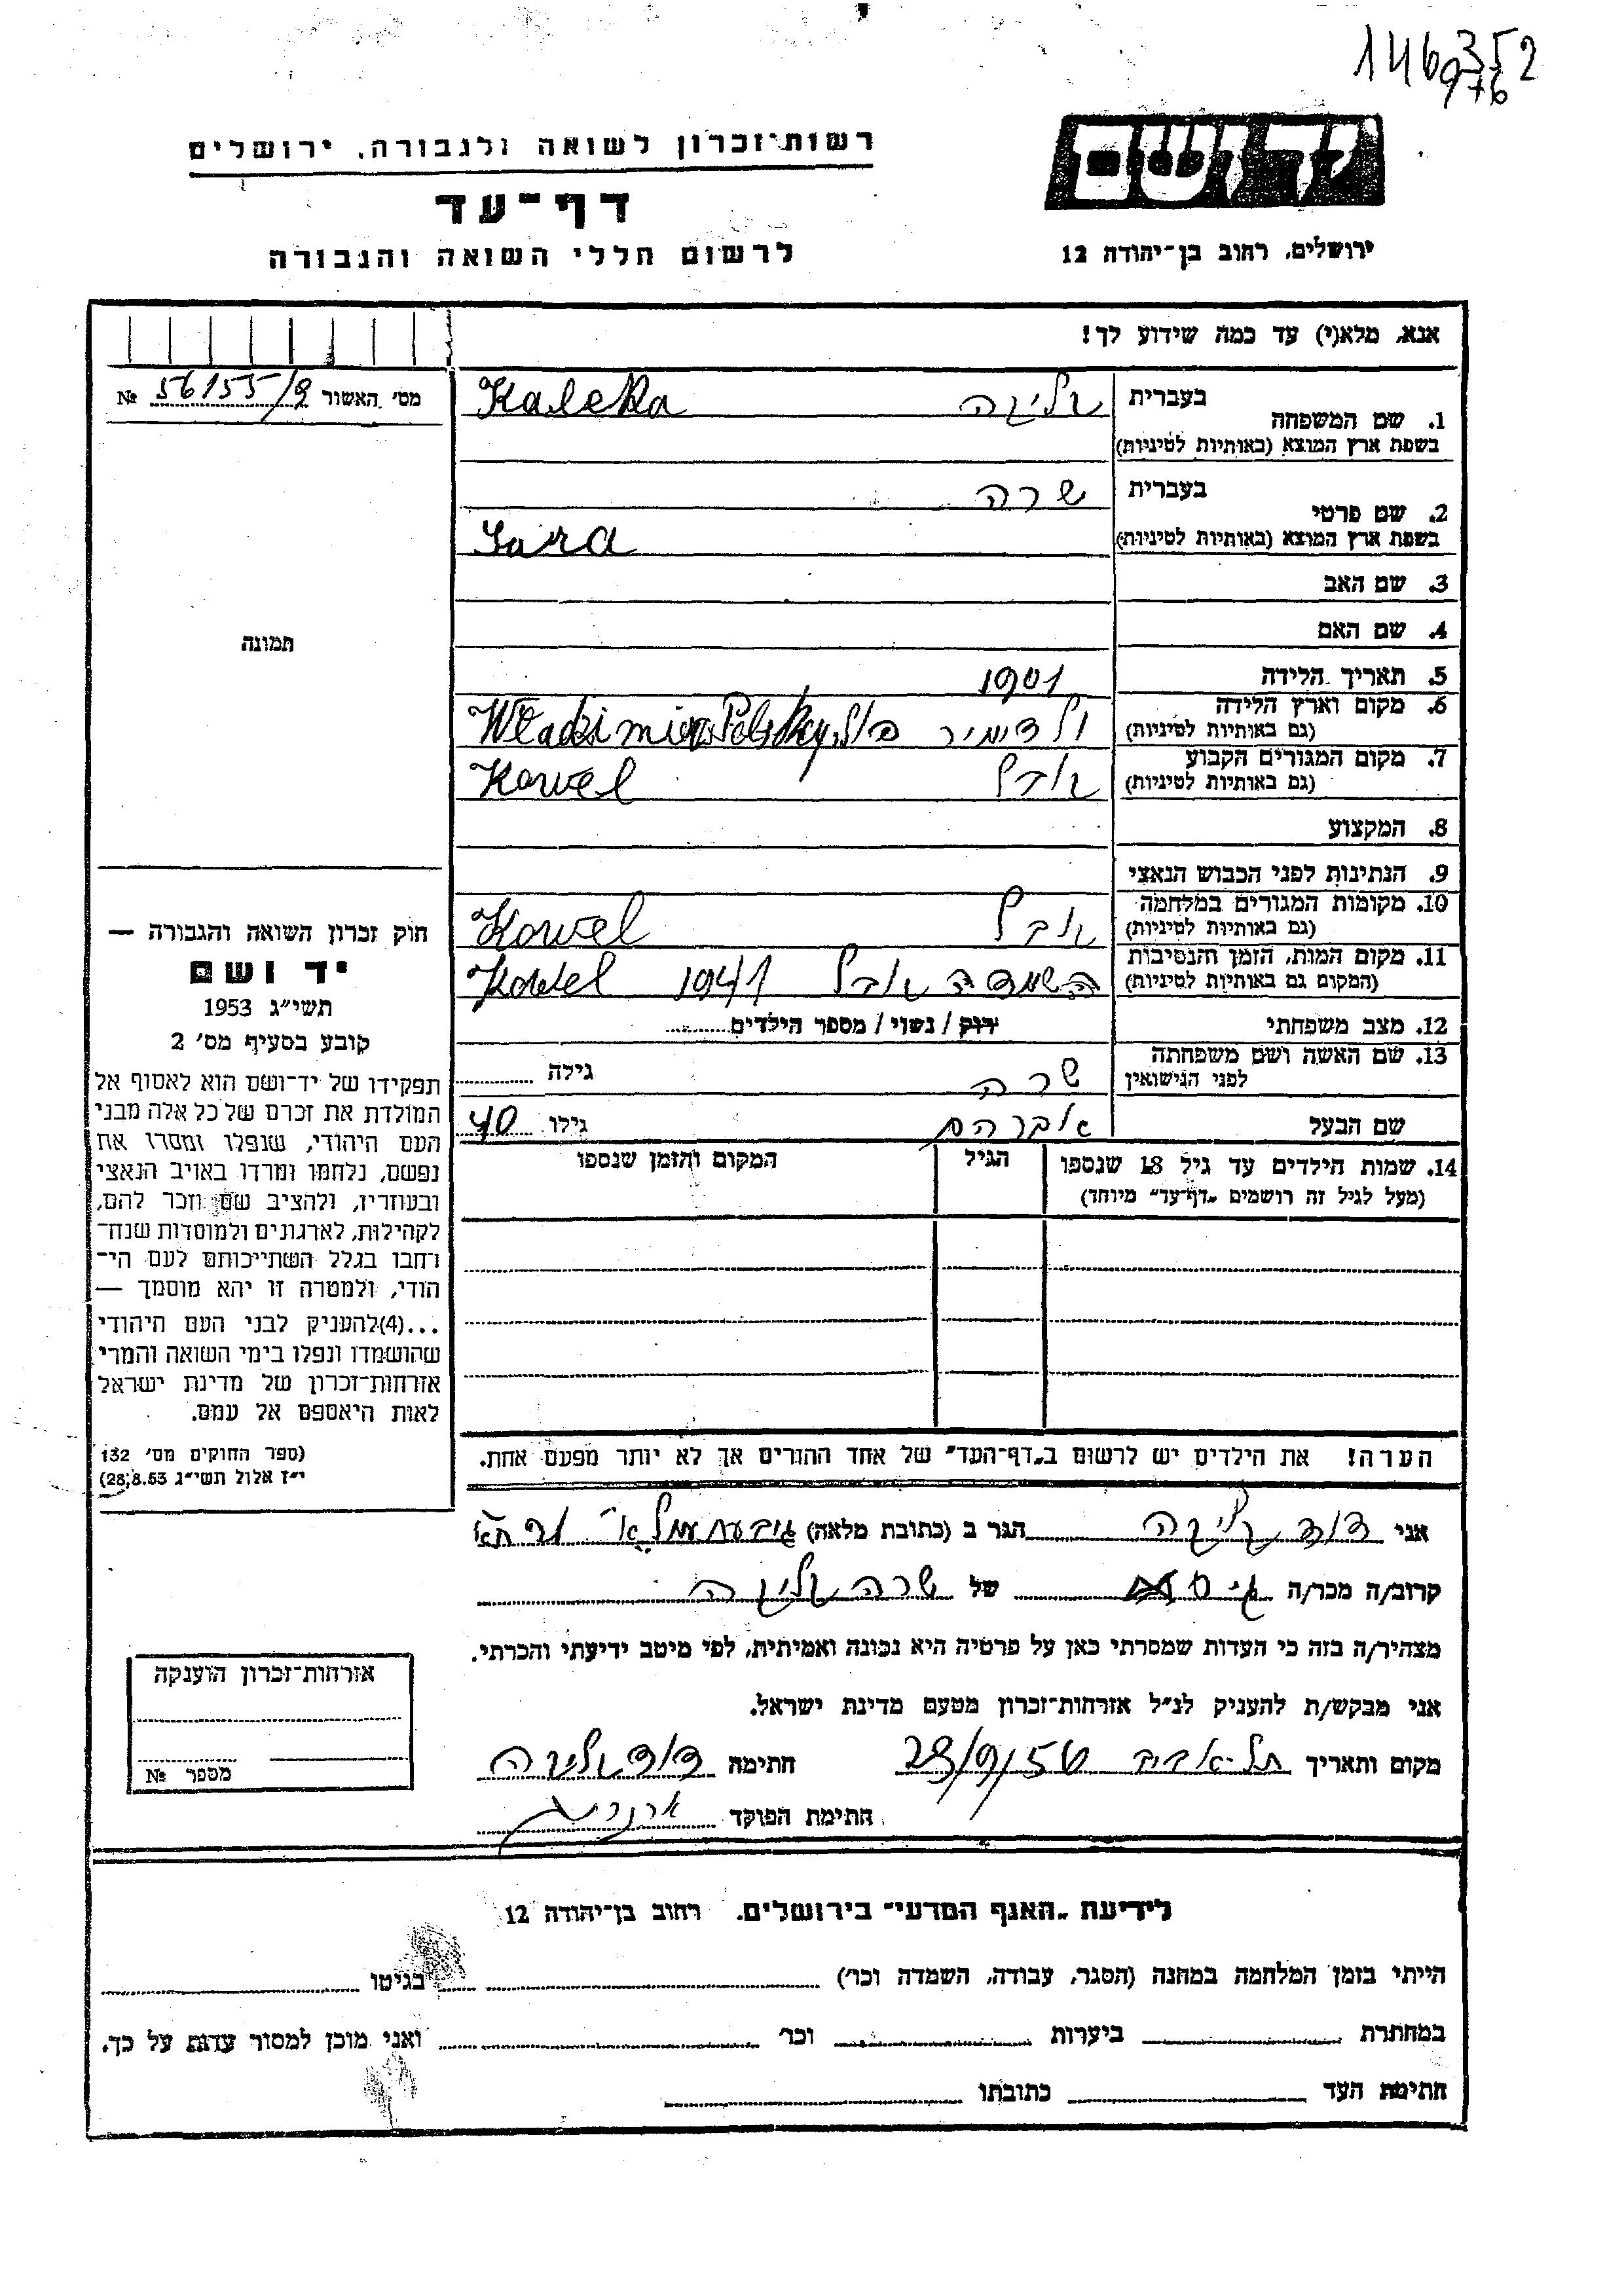 146352
976
יד ושם
ירושלים, רחוב בן־יהודה 12
רשות־זכרון לשואה ולגבורה, ירושלים
דף־עד
לרשום חללי השואה והגבורה
אנא, מלא(י) עד כמה שידוע לך!
מס' האשור № 56155/9
תמונה
1. שם המשפחה
בעברית קליקה Kaleka
בשפת ארץ המוצא (באותיות לטיניות)
2. שם פרטי
בעברית שרה
בשפת ארץ המוצא (באותיות לטיניות) Sara
3. שם האב
4. שם האם
5. תאריך הלידה 1901
6. מקום וארץ הלידה
(גם באותיות לטיניות) ולדימיר פול. Władzimierz Polskky
7. מקום המגורים הקבוע
(גם באותיות לטיניות) קובל Kowel
8. המקצוע
9. הנתינות לפני הכבוש הנאצי
10. מקומות המגורים במלחמה
(גם באותיות לטיניות) קובל Kowel
11. מקום המות, הזמן והנסיבות
(המקום גם באותיות לטיניות) השמדה קובל 1941 Kowel
12. מצב משפחתי רוק / נשוי / מספר הילדים
13. שם האשה ושם משפחתה
לפני הנישואין שרה גילה
שם הבעל אברהם גילו 40
14. שמות הילדים עד גיל 18 שנספו
(מעל לגיל זה רושמים „דף־עד" מיוחד)
הגיל
המקום והזמן שנספו
הערה! את הילדים יש לרשום ב„דף־העד" של אחד ההורים אך לא יותר מפעם אחת.
חוק זכרון השואה והגבורה —
יד ושם
תשי"ג 1953
קובע בסעיף מס' 2
תפקידו של יד־ושם הוא לאסוף אל
המולדת את זכרם של כל אלה מבני
העם היהודי, שנפלו ומסרו את
נפשם, נלחמו ומרדו באויב הנאצי
ובעוזריו, ולהציב שם וזכר להם,
לקהילות, לארגונים ולמוסדות שנח־
רחבו בגלל השתייכותם לעם הי־
הודי, ולמטרה זו יהא מוסמך —
...(4)להעניק לבני העם היהודי
שהושמדו ונפלו בימי השואה והמרי
אזרחות־זכרון של מדינת ישראל
לאות היאספם אל עמם.
(ספר החוקים מס' 132
י"ז אלול תשי"ג 28.8.53)
אני דוד קליקה הגר ב (כתובת מלאה) גיבעת עמל א'
קרוב/ה מכר/ה גיס של שרה קליקה
מצהיר/ה בזה כי העדות שמסרתי כאן על פרטיה היא נכונה ואמיתית, לפי מיטב ידיעתי והכרתי.
אני מבקש/ת להעניק לנ"ל אזרחות־זכרון מטעם מדינת ישראל.
מקום ותאריך תל-אביב 23/9/56 חתימה דוד קליקה
חתימת הפוקד
אזרחות־זכרון הוענקה
מספר №
לידיעת „האגף המדעי" בירושלים, רחוב בן־יהודה 12
הייתי בזמן המלחמה במחנה (הסגר, עבודה, השמדה וכו') בגיטו
במחתרת ביערות וכו' ואני מוכן למסור עדות על כך.
חתימת העד כתובתו